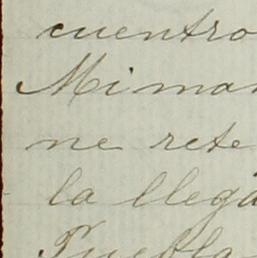 cuentro
Mi man
ne rete
la llega
Puebla